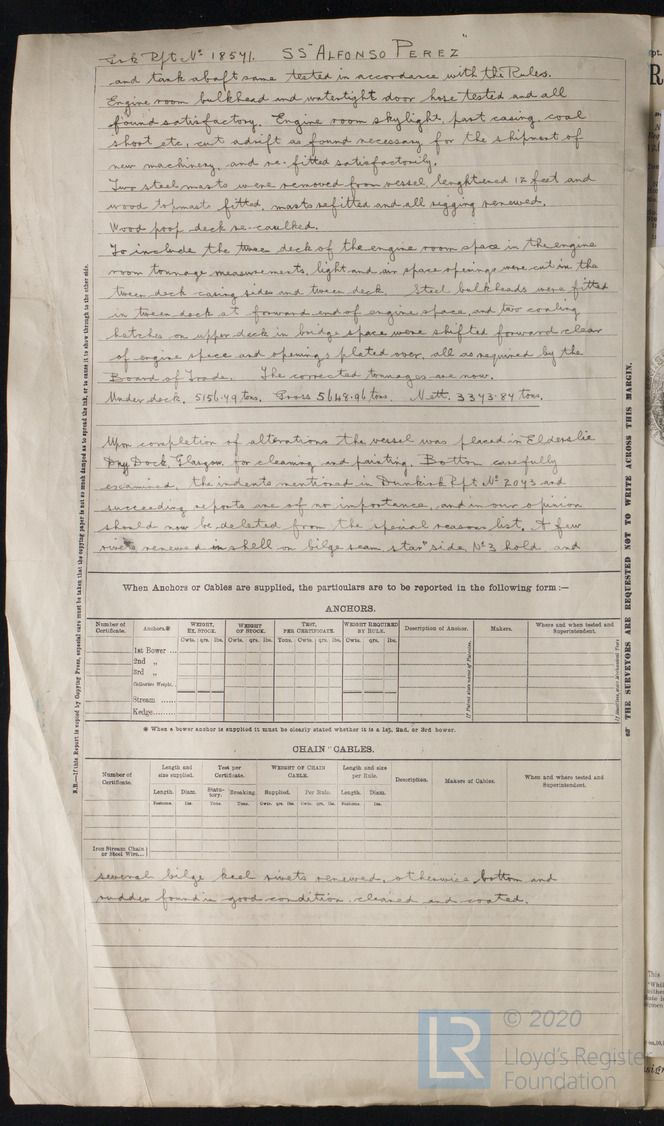 Grk Rpt No 18571. SS "ALFONSO PEREZ"
and tank abaft same tested in accordance with the Rules.
Engine room bulkhead and watertight door hose tested and all
found satisfactory. Engine room skylight, part casing, coal
shoot etc, cut adrift as found necessary for the shipment of
new machinery, and re-fitted satisfactorily.
Two steel masts were removed from vessel, lenghtened 12 feet and
wood topmasts fitted, masts refitted and all rigging renewed.
Wood poop deck re-caulked.
To include the twee deck of the engine room space in the engine
room tonnage measurements, light and air space openings were cut in the
tween deck casing sides and tween deck. Steel bulkheads were fitted
in tween deck at forward end of engine space, and two coaling
hatches on upper deck in bridge space were shifted forward clear
of engine space and openings plated over, all as required by the
Board of Trade. The corrected tonnages are now.
Under deck. 5156.49 tons. Gross 5648.96 tons. Nett. 3373.84 tons.
Upon completion of alterations the vessel was placed in Elderslie
Dry Dock, Glasgow for cleaning and painting. Bottom carefully
examined, the indents mentioned in Dunkirk Rpt No 2043 and
succeeding reports are of no importance, and in our opinion
should now be deleted from the special reasons list. A few
rivets renewed in shell on bilge seam, starb side, No 3 hold, and
When Anchors or Cables are supplied, the particulars are to be reported in the following form :—
ANCHORS.
Number of Certificate. Anchors.* WEIGHT, EX. STOCK. WEIGHT OF STOCK. TEST, PER CERTIFICATE. WEIGHT REQUIRED BY RULE. Description of Anchor. Makers. Where and when tested and Superintendent.
Cwts. qrs. lbs. Cwts. qrs. lbs. Tons. Cwts. qrs. lbs. Cwts. qrs. lbs.
1st Bower ...
2nd „
3rd „
Collective Weight.
Stream ......
Kedge........
If Patent state name of Patentee.
* When a bower anchor is supplied it must be clearly stated whether it is a 1st, 2nd, or 3rd bower.
CHAIN CABLES.
Number of Certificate. Length and size supplied. Test per Certificate. WEIGHT OF CHAIN CABLE. Length and size per Rule. Description. Makers of Cables. When and where tested and Superintendent.
Length. Diam. Statutory. Breaking. Supplied. Per Rule. Length. Diam.
Fathoms. Ins. Tons. Tons. Cwts. qrs. lbs. Cwts. qrs. lbs. Fathoms. Ins.
Iron Stream Chain or Steel Wire...
several bilge keel rivets renewed, otherwise bottom and
rudder found in good condition, cleaned and coated.
N.B.—If this Report is copied by Copying Press, especial care must be taken that the copying paper is not so much damped as to spread the ink, or to cause it to show through to the other side.
THE SURVEYORS ARE REQUESTED NOT TO WRITE ACROSS THIS MARGIN.
LR
© 2020
Lloyd's Register
Foundation